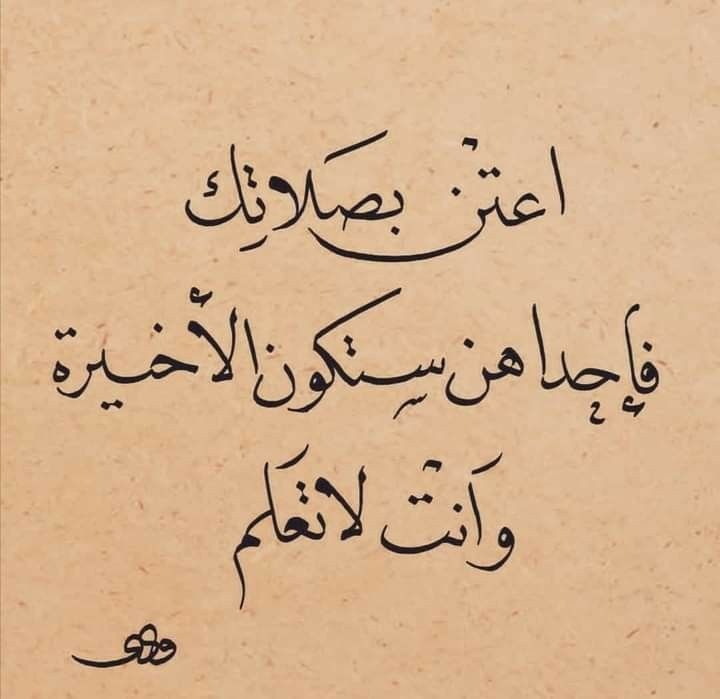 اعتنْ بصَلاتِك
فإحداهن ستكون الأخيرة
وَانتْ لا تعَلم